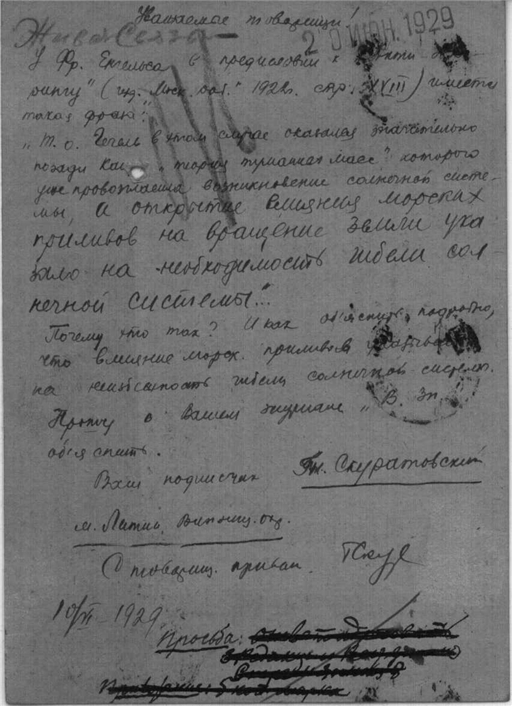 Уважаемые товарищи!
Живая Связь
20 ИЮН. 1929
У Фр. Енгельса в предисловии к "Анти Дю
рингу" (изд. Моск. раб. 1922г. стр. XVIII) имеется
такая фраза:
"Т. о. Гегель в этом случае оказался значительно
позади Канта, теория туманных масс" которого
уже провозгласила возникновение солнечной систе-
мы, а открытие влияния морских
приливов на вращение земли ука
зало на необходимость гибели сол
нечной системы"..
Почему это так? И как об'яснить подробно,
что влияние морск. приливов
на неизбежность гибели солнечной системы.
Прошу в Вашем журнале "В. Зн.
об'яснить.
Ваш подписчик
Скуратовский
м. Литин, Винниц. окр.
С товарищ. привет.
10/VI 1929
Просьба: